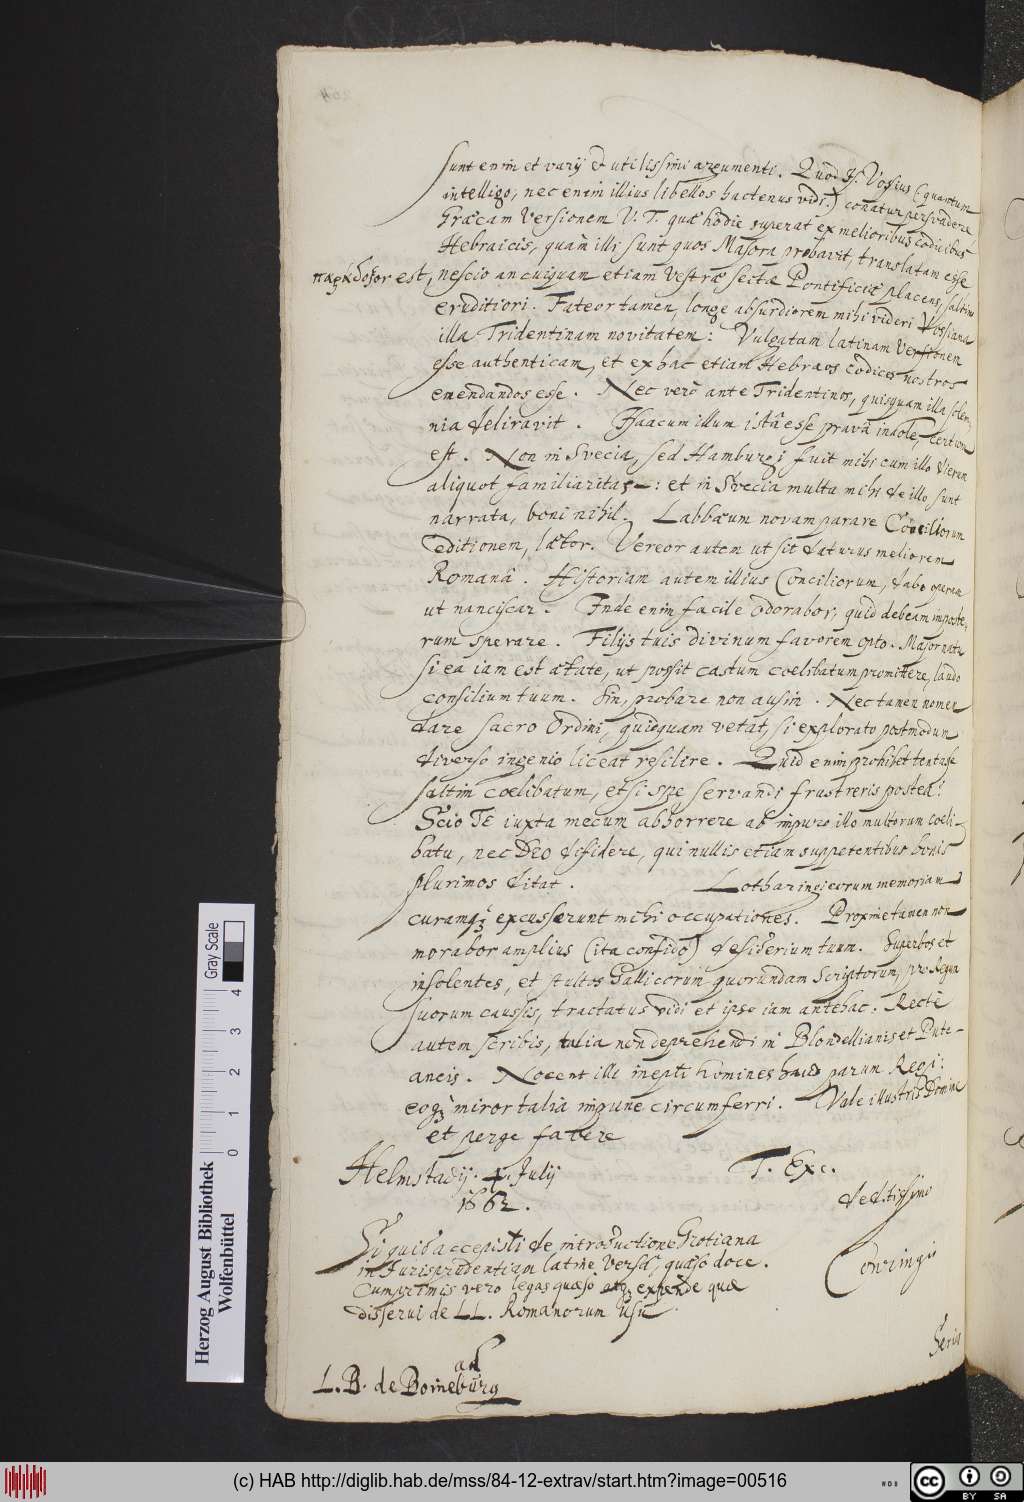 sunt enim et varij et utilissimi argumenti. Quod Is. Vossius (quantum
intelligo, nec enim illius libellos hactenus vidi.) conatur persvadere
Græcam Versionem V. T. quæ hodie superat ex melioribus codicibus
Hebraicis, quàm illi sunt quos Masora probavit, translatam esse
παράδοξον est, nescio an cuiquam etiam Vestræ sectæ Pontificiæ placens, saltim
eruditiori. Fateor tamen, longe absurdiorem mihi videri Vossiana
illa Tridentinam novitatem: Vulgatam latinam Versionem
esse authenticam, et ex hac etiam Hebræos codices nostros
emendandos esse. Nec verò ante Tridentinos, quisquam illa solem-
nia deliravit. Isaacum illum istâ esse pravâ indole, certum
est. Non in Svecia, sed Hamburgi fuit mihi cum illo dierum
aliquot familiaritas: et in Svecia multa mihi de illo sunt
narrata, boni nihil. Labbæum novam parare Conciliorum
editionem, lætor. Vereor autem ut sit daturus meliorem
Romanâ. Historiam autem illius Conciliorum, dabo operam
ut nanciscar. Inde enim facile odorabor, quid debeam in poste-
rum sperare. Filijs tuis divinum favorem opto. Major natu
si ea iam est ætate, ut possit castum cœlibatum promittere, laudo
consilium tuum. Sin, probare non ausim. Nec tamen nomen
dare sacro Ordini, quicquam vetat, si explorato postmodum
diverso ingenio liceat resilire. Quid enim prohibet tentasse
saltim cœlibatum, etsi spe servandi frustreris postea?
Scio TE iuxta mecum abhorrere ab impuro illo multorum cœli-
batu, nec DEO disfidere, qui nullis etiam suppetentibus bonis
plurimos ditat. Lotharingicorum memoriam
curamq; excusserunt mihi occupationes. Proxime tamen non
morabor amplius (ita confido) desiderium tuum. Superbos et
insolentes, et stultos Gallicorum quorundam Scriptorum, pro Regum
suorum caussis, tractatus vidi et ipse iam antehac. Recte
autem scribis, talia non deprehendi in Blondellianis et Pute-
aneis. Nocent illi inepti homines haud parum Regi:
eoq; miror talia impune circumferri. Vale illustris Domine
et perge favere
Helmstadij. 4. Julij
1662.
T. Exc.
deditissimo
Conringio
Si quid accepisti de introductione Grotiana
in Jurisprudentiam latine versa, quæso doce.
Cumprimis vero legas quæso atq; expende quæ
disserui de LL. Romanorum usu.
Seris
ad
L. B. de Boineburg
Herzog August Bibliothek
Wolfenbüttel
Gray Scale
0 1 2 3 4
(c) HAB http://diglib.hab.de/mss/84-12-extrav/start.htm?image=00516
cc BY SA